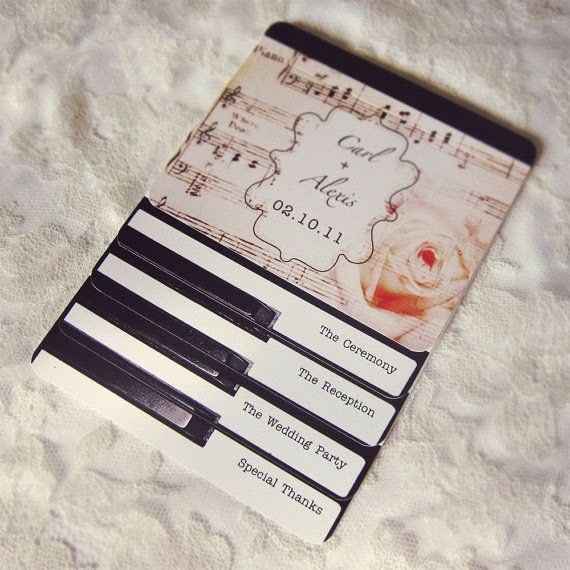 Piano
Carl
+
Alexis
02.10.11
The Ceremony
The Reception
The Wedding Party
Special Thanks